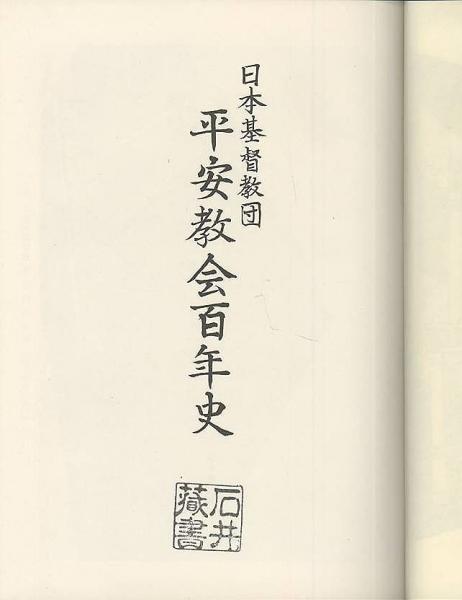 日本基督教団
平安教会百年史
石井
蔵書